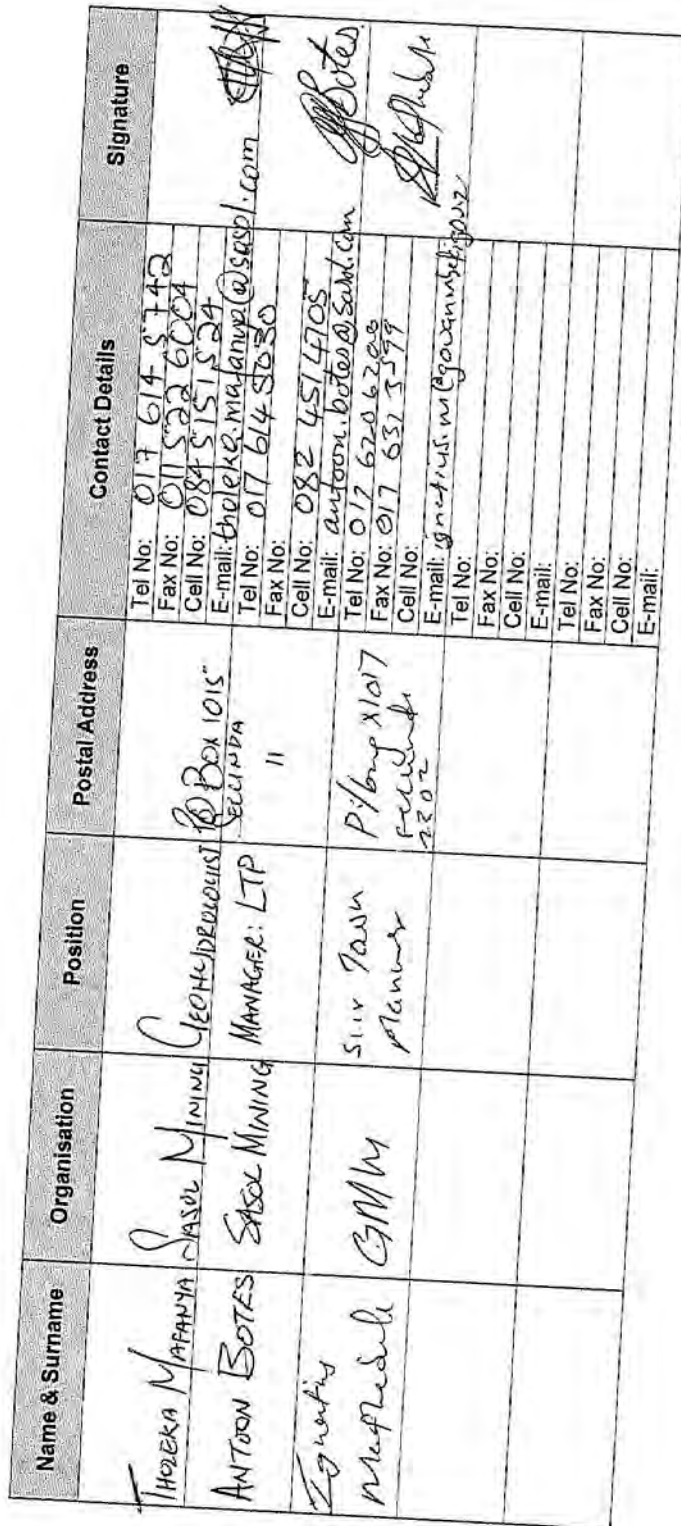 Name & Surname
Organisation
Position
Postal Address
Contact Details
Signature
THOLEKA MAFANYA
SASOL MINING
GEOHYDROLOGIST
PO BOX 1015
SECUNDA
Tel No: 017 614 5742
Fax No: 011 522 6004
Cell No: 084 5151 524
E-mail: tholeka.mafanya@sasol.com
ANTOON BOTES
SASOL MINING
MANAGER: LTP
11
Tel No: 017 614 5030
Fax No:
Cell No: 082 451 4705
E-mail: antoon.botes@sasol.com
Botes
Ignatius
GMM
Town
Planner
P/bag X1017
2302
Tel No: 017 620 6200
Fax No: 017 632 3599
Cell No:
E-mail:
Tel No:
Fax No:
Cell No:
E-mail:
Tel No:
Fax No:
Cell No:
E-mail: